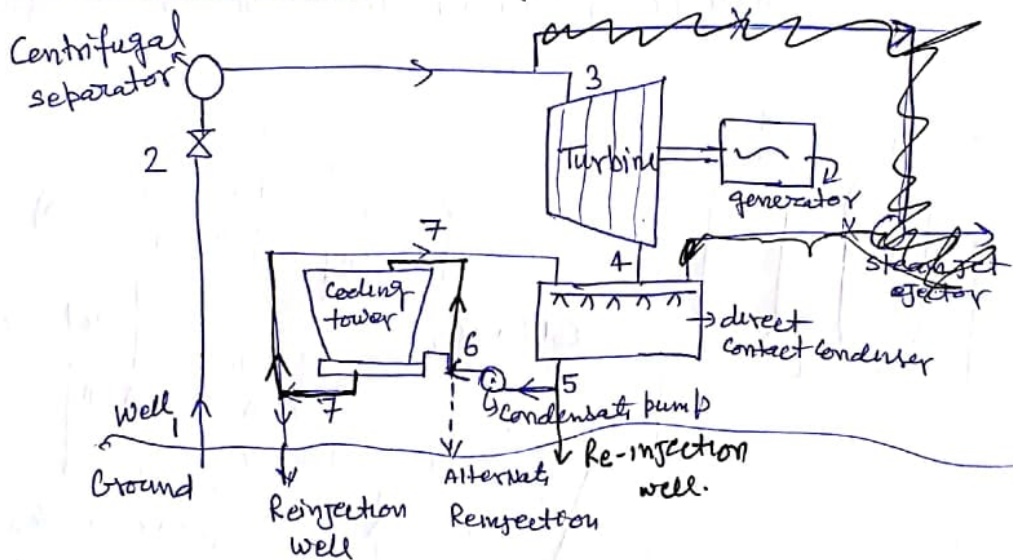 Centrifugal
separator
3
2
Turbine
generator
7
4
steam jet
ejector
cooling
tower
direct
contact condenser
6
5
7
condensate pump
Well
1
Re-injection
well.
Ground
Alternate
Reinjection
Reinjection
well